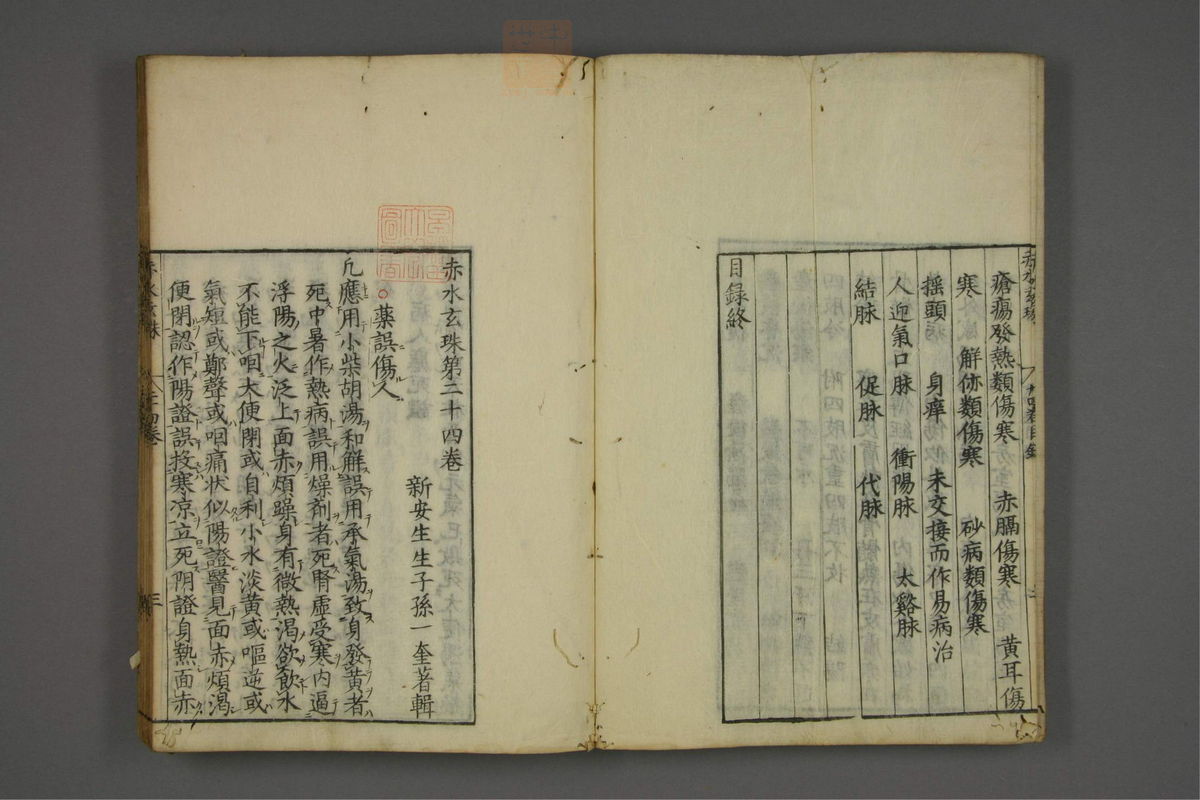 瘡瘍發熱類傷寒　赤膈傷寒　黃耳傷
寒　解㑊類傷寒　砂病類傷寒
搖頭　身痒　未交接而作易病治
人迎氣口脉　衝陽脉　太谿脉
結脉　促脉　代脉
目録終
赤水玄珠第二十四卷
新安生生子孫一奎著輯
○藥誤傷人
凡應用小柴胡湯和解誤用承氣湯致身發黃者
死中暑作熱病誤用燥剤者死腎虛受寒内逼
浮陽之火泛上面赤煩躁身有微熱渴欲飲水
不能下咽大便閉或自利小水淡黃或嘔逆或
氣短或鄭聲或咽痛狀似陽證醫見面赤煩渴
便閉認作陽證誤投寒凉立死阴證身熱面赤